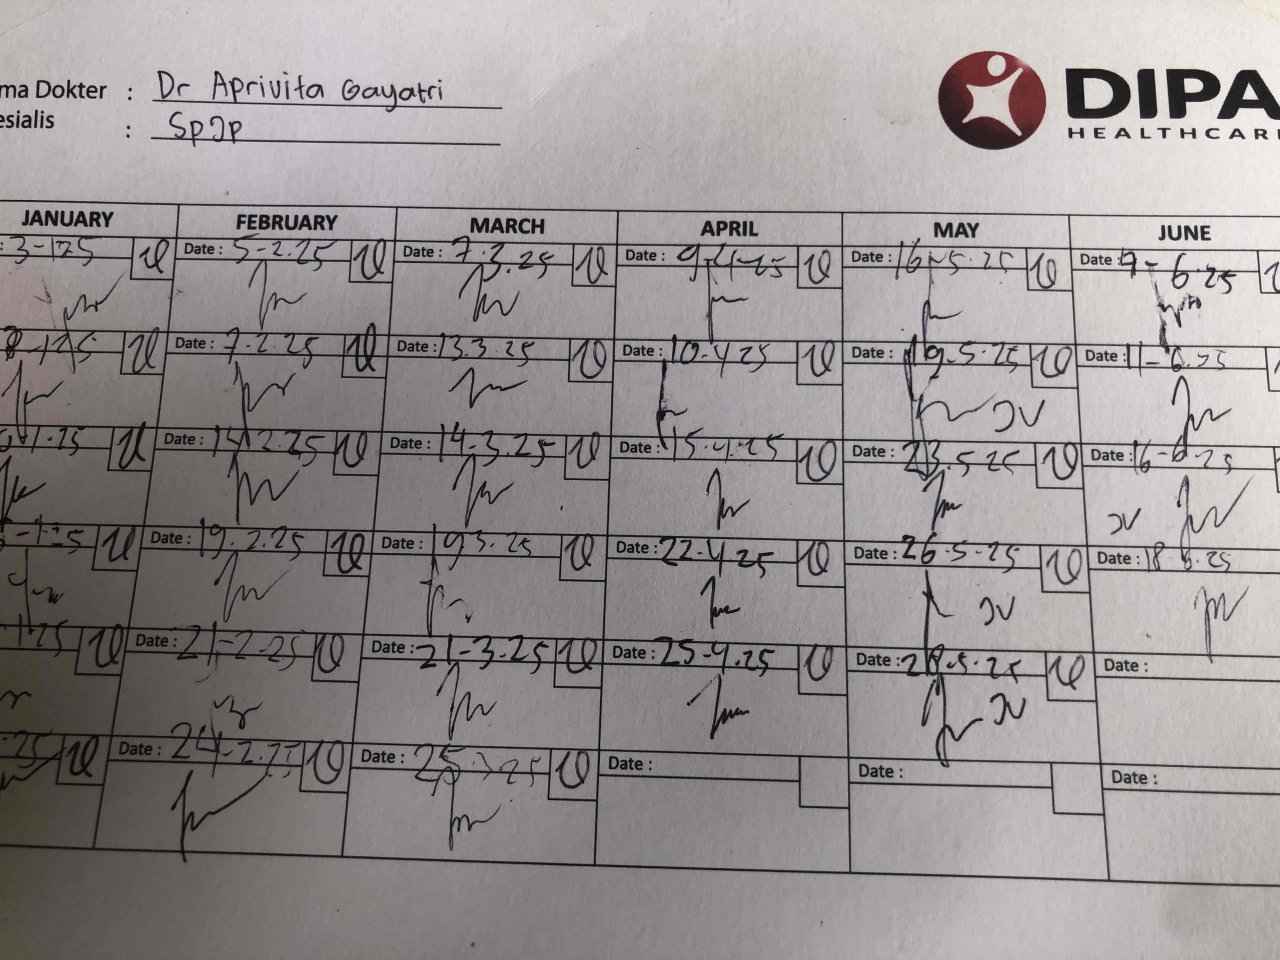 ma Dokter : Dr Aprivita Gayatri
esialis : SpJp
DIPA
HEALTHCARE
JANUARY FEBRUARY MARCH APRIL MAY JUNE
: 3-1-25 Date : 5-2.25 Date : 7.3.25 Date : 9-4-25 Date : 16-5.25 Date : 9-6.25
8-1-25 Date : 7-2.25 Date : 13.3.25 Date : 10-4.25 Date : 19-5.25 Date : 11-6.25
JV
1.25 Date : 14.2.25 Date : 14-3.25 Date : 15.4.25 Date : 23.5.25 Date : 16-6-25
JV
-1-25 Date : 19.2.25 Date : 19.3.25 Date : 22-4.25 Date : 26-5-25 Date : 18-6.25
JV
-1.25 Date : 21-2-25 Date : 21-3.25 Date : 25-4.25 Date : 28.5.25 Date :
JV
.25 Date : 24-2.25 Date : 25.3.25 Date : Date : Date :